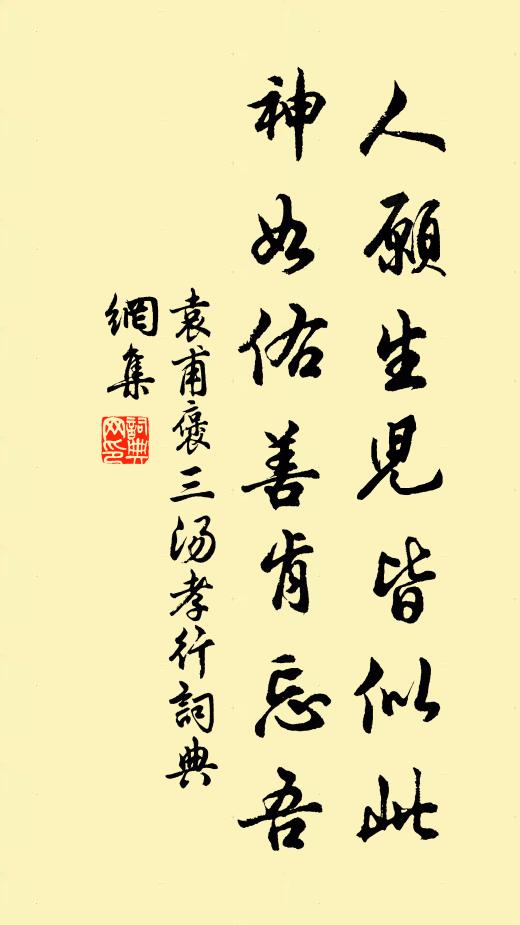 人願生兒皆似此
神如佑善肯忘吾
袁甫褒三湯孝行詞典
網集
詞典
网印